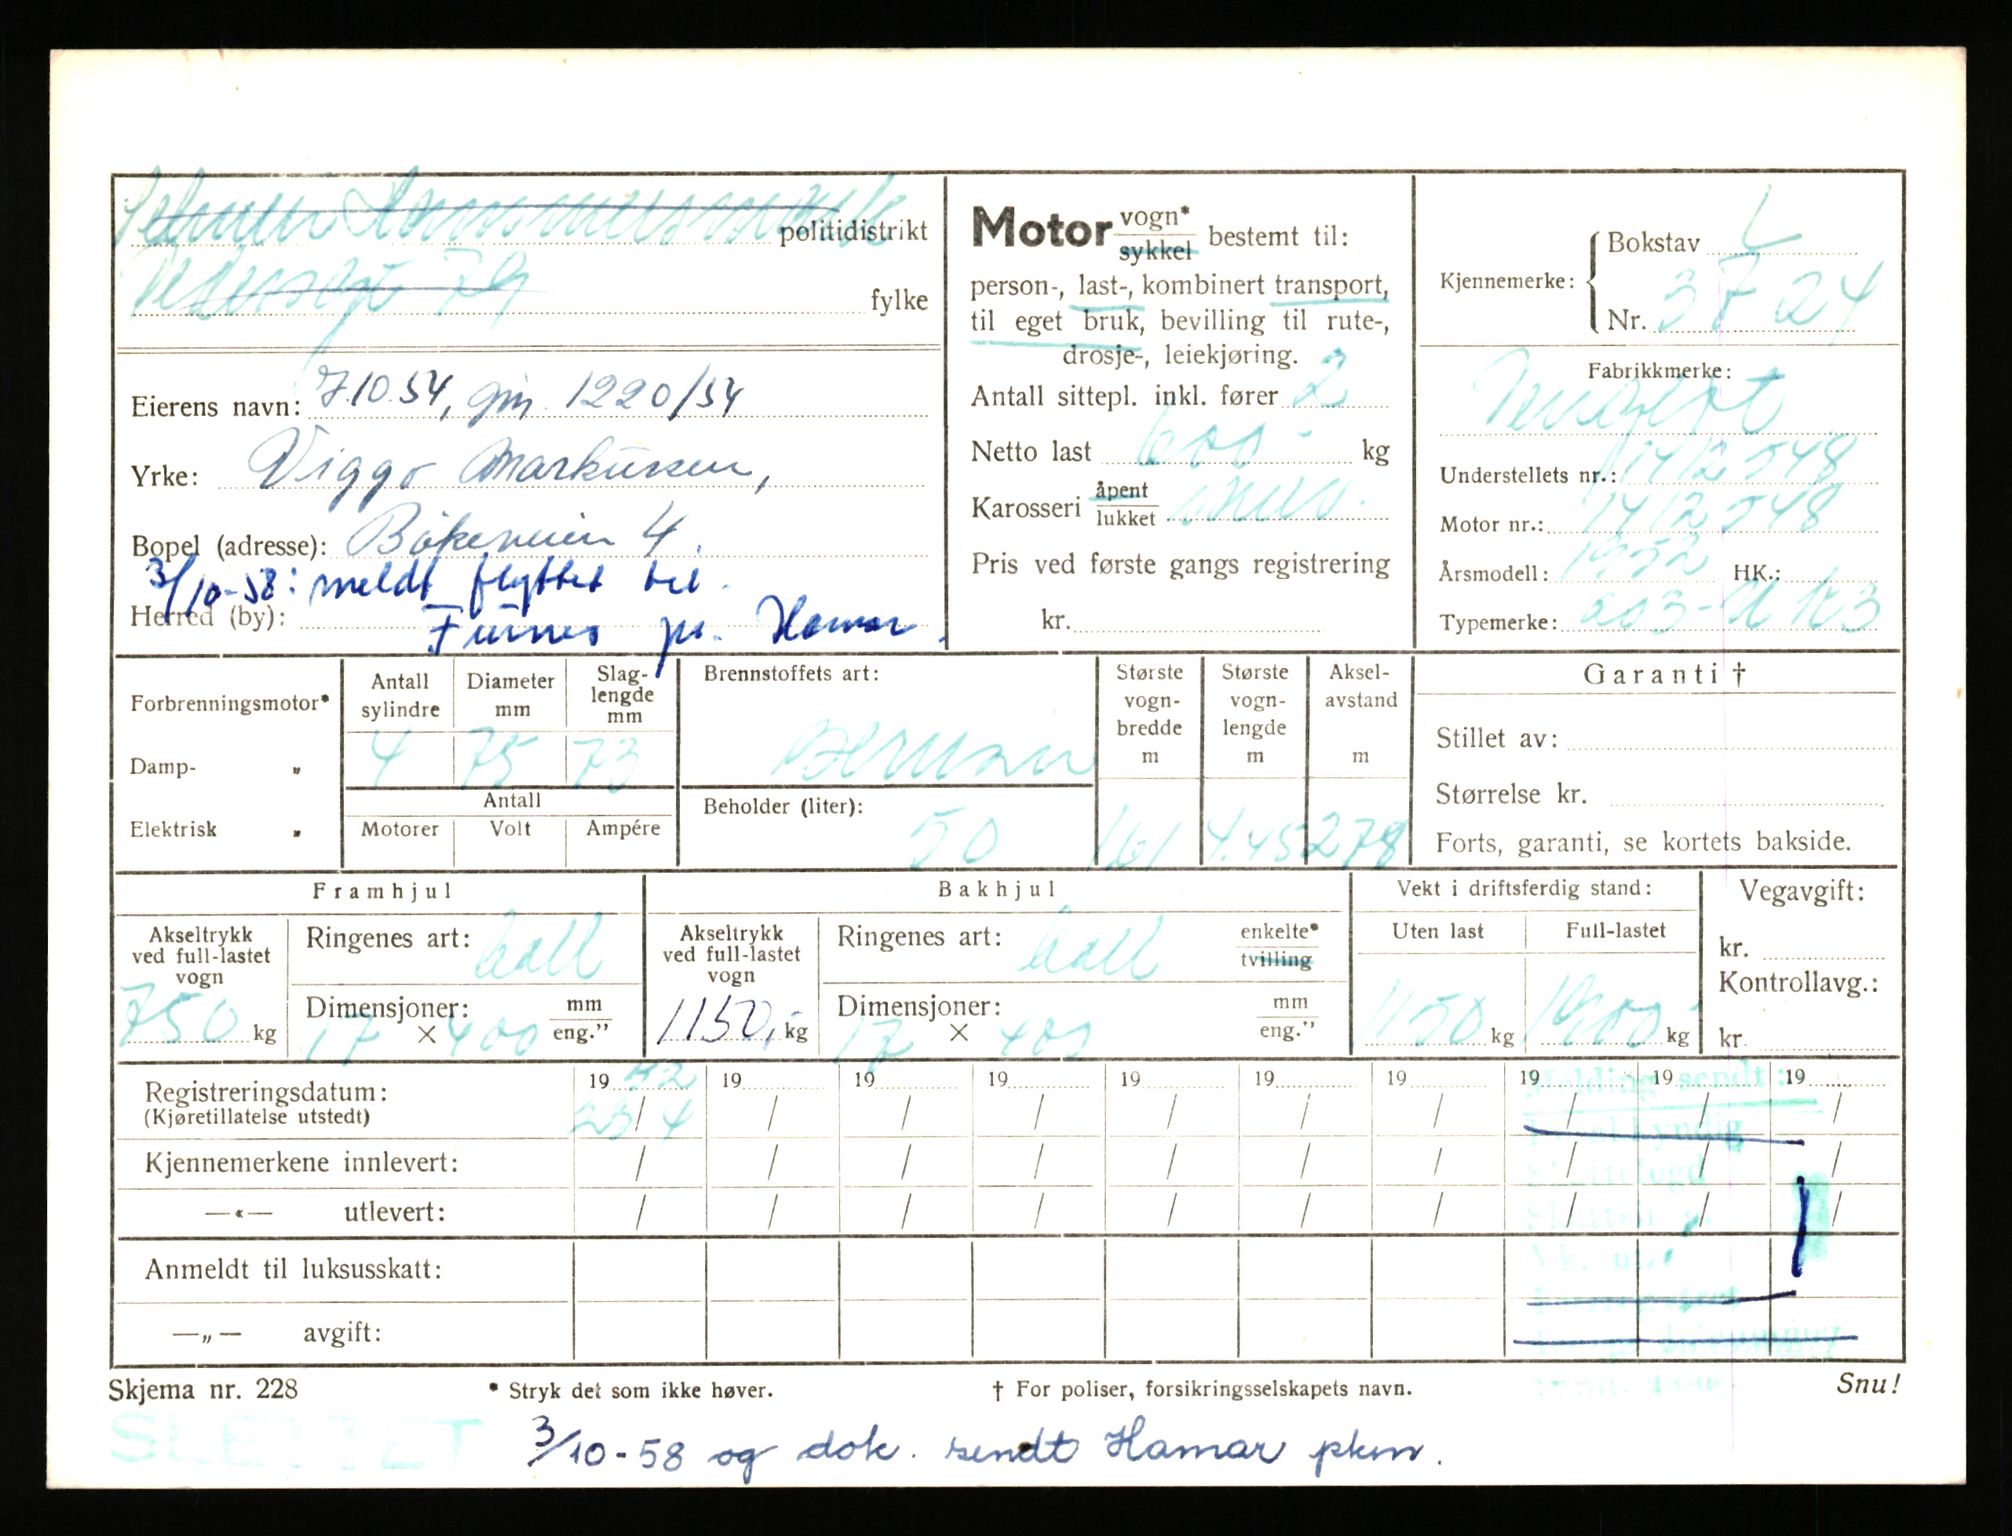 politidistrikt
79
fylke
Eierens navn: 7.10.54, gm. 1220/54
Yrke: Viggo Markussen,
Bopel (adresse): Bökeveien 4.
3/10-58: meldt flyttet til
Herred (by): Furnes pr. Hamar.
Motor vogn*
sykkel bestemt til:
person-, last-, kombinert transport,
til eget bruk, bevilling til rute-,
drosje-, leiekjøring.
Antall sittepl. inkl. fører 2
Netto last 600 kg
Karosseri åpent
lukket
Pris ved første gangs registrering
kr.
Kjennemerke: Bokstav L
Nr. 37 24
Fabrikkmerke:
Understellets nr.: 1412548
Motor nr.: 1412548
Årsmodell: 1952 HK.:
Typemerke:
Forbrenningsmotor*
Damp- „
Elektrisk „
Antall sylindre 4
Diameter mm 75
Slag-lengde mm 73
Antall
Motorer Volt Ampére
Brennstoffets art: Bensin
Beholder (liter): 50
Største vogn-bredde m 161
Største vogn-lengde m 4.45
Aksel-avstand m 278
Garanti †
Stillet av:
Størrelse kr.
Forts, garanti, se kortets bakside.
Framhjul
Akseltrykk ved full-lastet vogn 750 kg
Ringenes art: ball
Dimensjoner: 17 × 400 mm
eng.”
Bakhjul
Akseltrykk ved full-lastet vogn 1150,- kg
Ringenes art: ball
enkelte*
tvilling
Dimensjoner: 17 × 400 mm
eng.”
Vekt i driftsferdig stand:
Uten last 1150 kg
Full-lastet 1900 kg
Vegavgift:
kr.
Kontrollavg.:
kr.
Registreringsdatum: 19 52 19 19 19 19 19 19 19 19 19
(Kjøretillatelse utstedt) 23/4 / / / / / / / / /
Kjennemerkene innlevert: / / / / / / / / / /
—«— utlevert: / / / / / / / / / /
Anmeldt til luksusskatt:
—„— avgift:
Melding sendt:
Skjema nr. 228 * Stryk det som ikke høver. † For poliser, forsikringsselskapets navn. Snu!
SLETTET
3/10-58 og dok. sendt Hamar pkm.